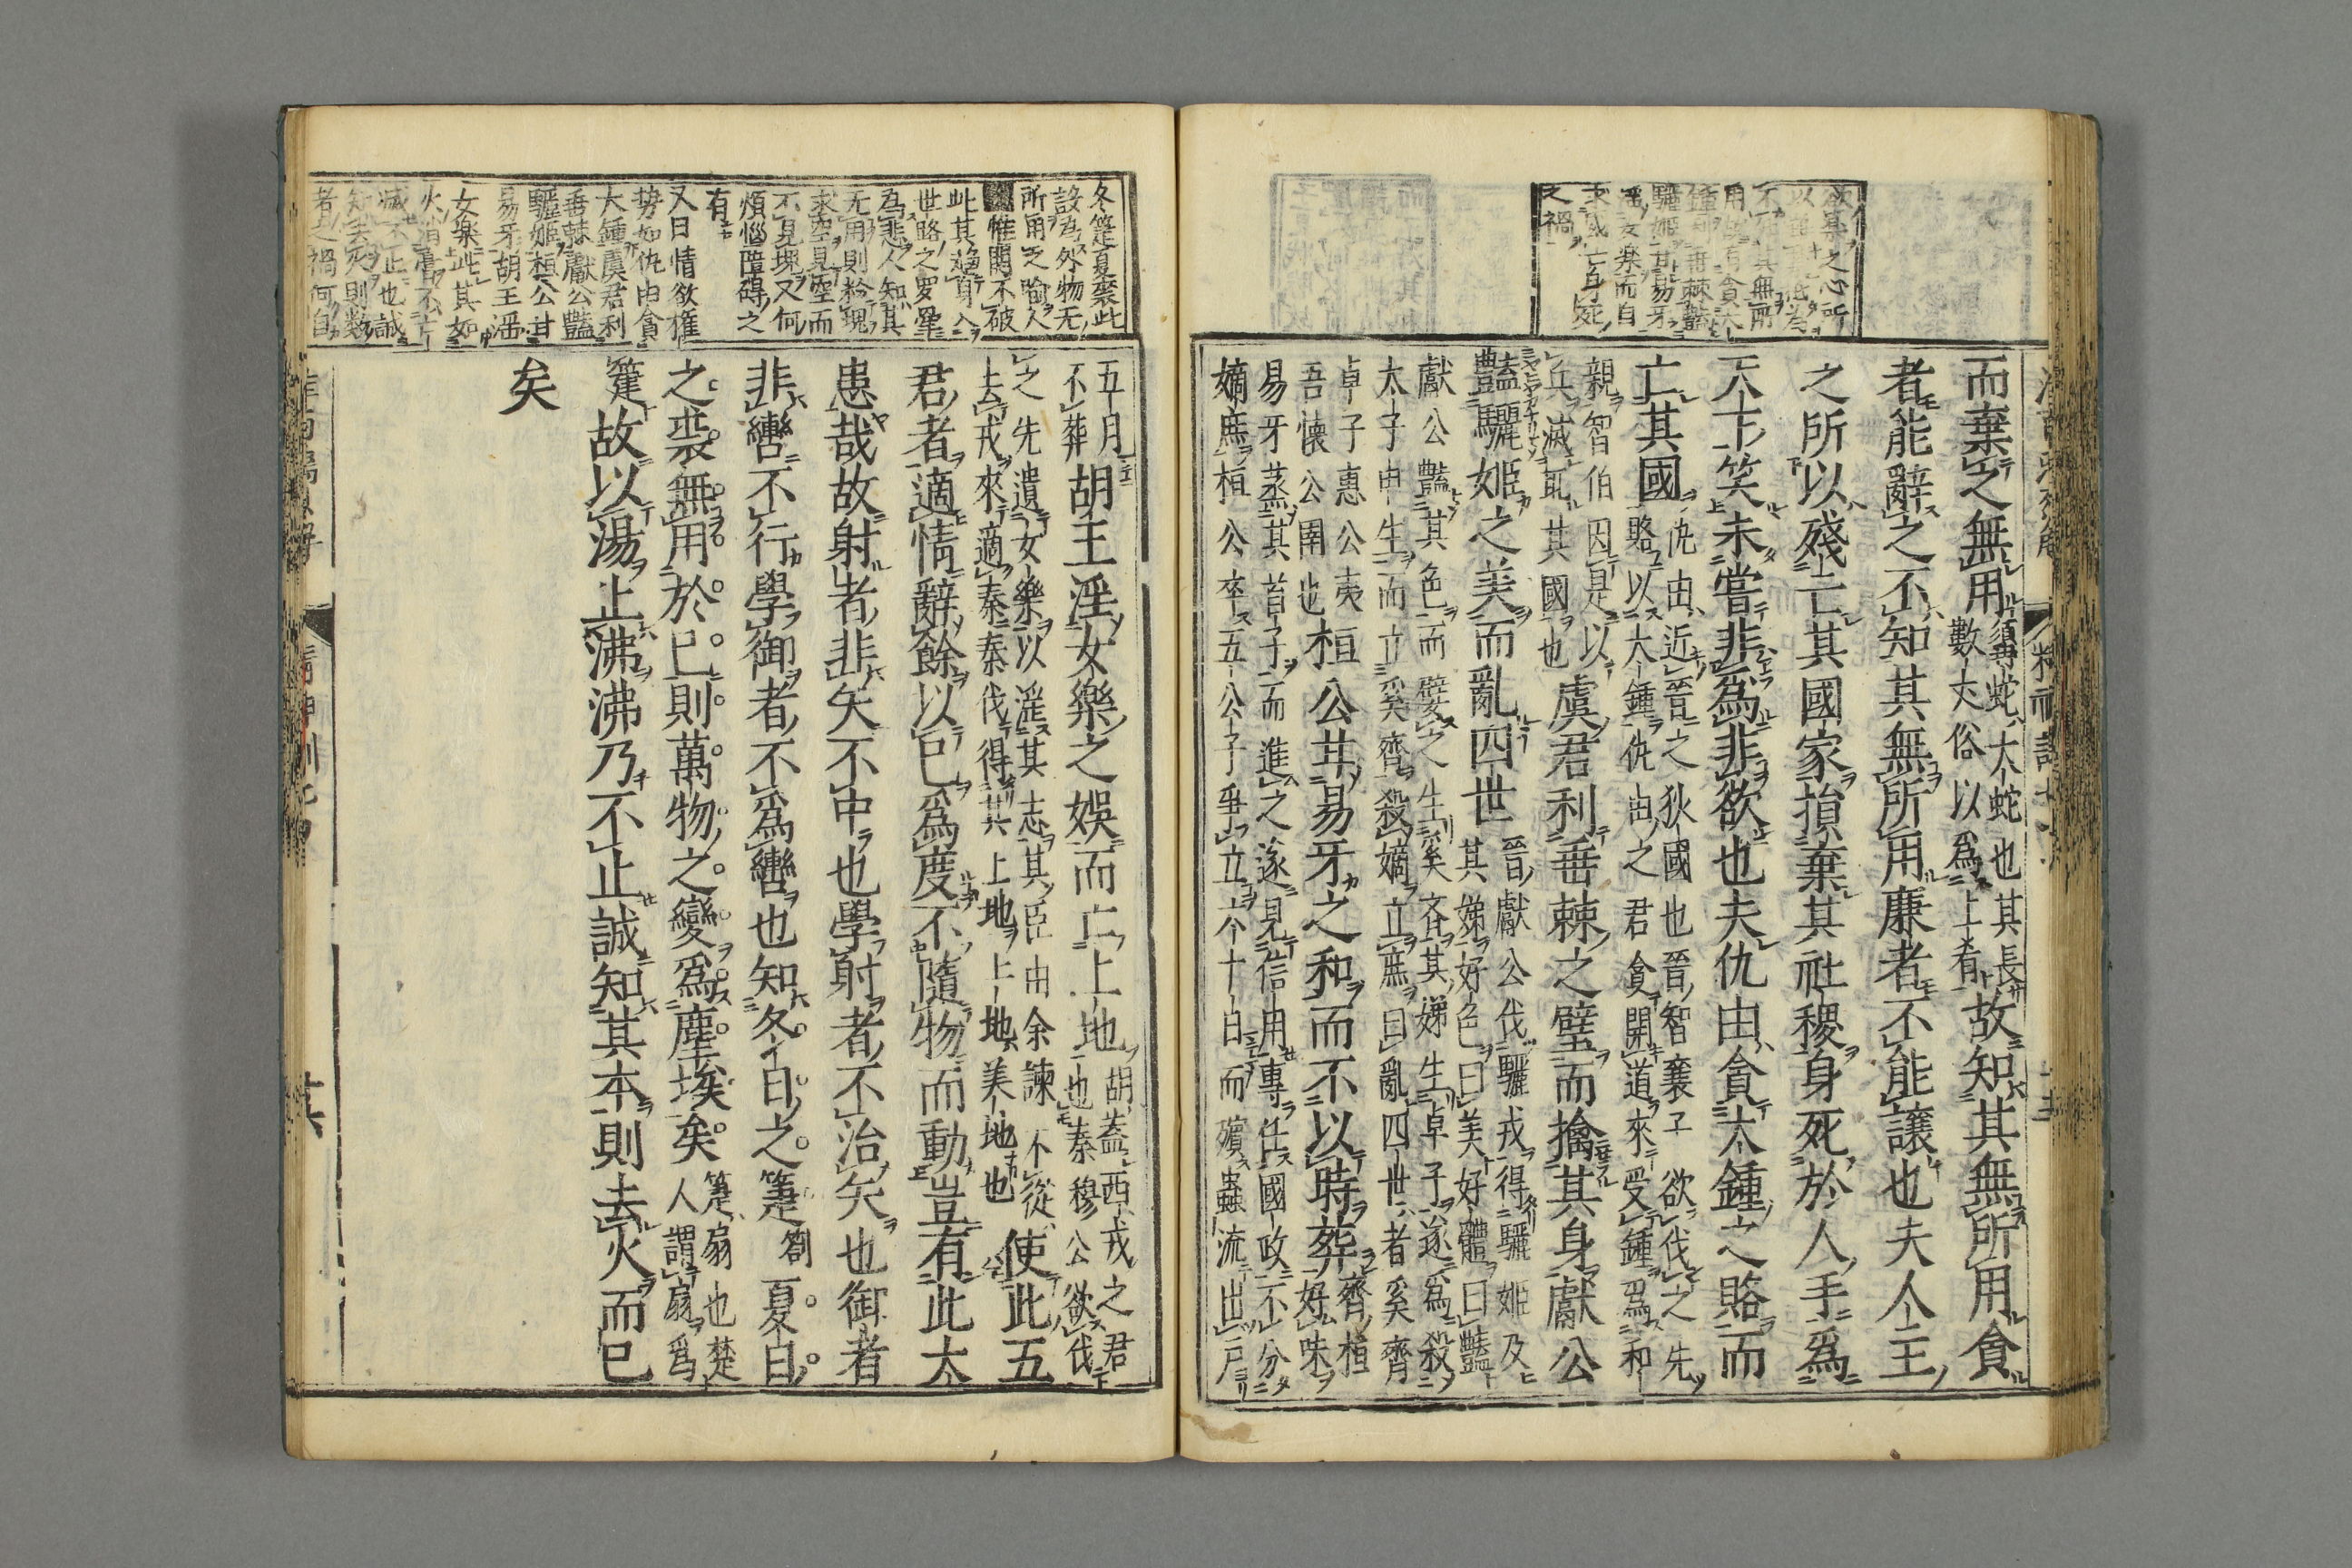 欲棄之心所
不知其無所
用。有貪大
鍾利垂棘豔
驪姬甘易牙
淫女樂而自
求滅亡身死
之禍
而棄之無用
髯蛇大蛇也其長
數丈俗以爲上肴
故知其無所用貪
者能辭之不知其無所用廉者不能讓也夫人主
之所以殘亡其國家損棄其社稷身死於人手爲
天下笑未嘗非爲非欲也夫仇由貪大鍾之賂而
亡其國
仇由近晉之狄國也晉智襄子欲伐之先
賂以大鍾仇由之君貪開道來受鍾爲和
親智伯因是以
兵滅取其國也
虞君利垂棘之璧而擒其身獻公
豔驪姬之美而亂四世
晉獻公伐驪戎得驪姬及
其娣好色曰美好體曰豔
獻公豔其色而嬖之生奚齊其娣生卓子遂爲殺
太子申生而立奚齊殺嫡立庶曰亂四世者奚齊
卓子惠公夷
吾懷公圉也
桓公甘易牙之和而不以時葬
齊桓
好味
易牙蒸其首子而進之遂見信用專任國政不分
嫡庶桓公卒五公子爭立六十日而殯蟲流出戶
五月
不葬
胡王淫女樂之娛而亡上地
胡蓋西戎之君
也秦穆公欲伐
之先遺女樂以淫其志其臣由余諫不從
去戎來適秦秦伐得其上地上地美地也
使此五
君者適情辭餘以已爲度不隨物而動豈有此大
患哉故射者非矢不中也學射者不治矢也御者
非轡不行學御者不爲轡也知冬日之箑
劄
夏日
之裘無用於已則萬物之變爲塵埃矣
箑扇也楚
人謂扇爲
箑
故以湯止沸沸乃不止誠知其本則去火而已
矣
冬箑夏裘此
設為外物无
所用之喻人
惟關不破
此其適自入
世路之罗罿
為悲人知其
无用則粉瑰
求空見空而
不見塊又何
煩惱障碍之
有
又曰情欲権
势如仇由貪
大鍾虞君利
垂棘獻公豔
驪姬桓公甘
易牙胡王淫
女樂此其如
火消膏不亡
滅不止也誠
知美死則数
者之禍何自